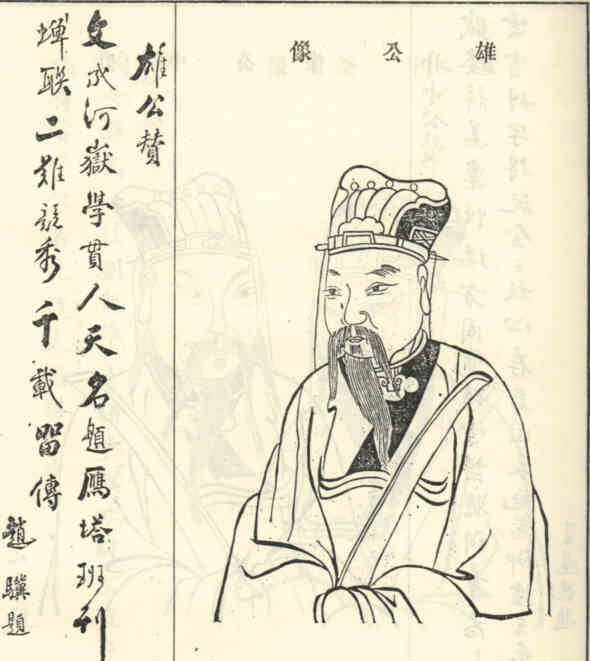 雄公像
雄公賛
文成河嶽學貫人天名題鴈塔班列
蟬聯二難競秀千載留傳
趙驥題